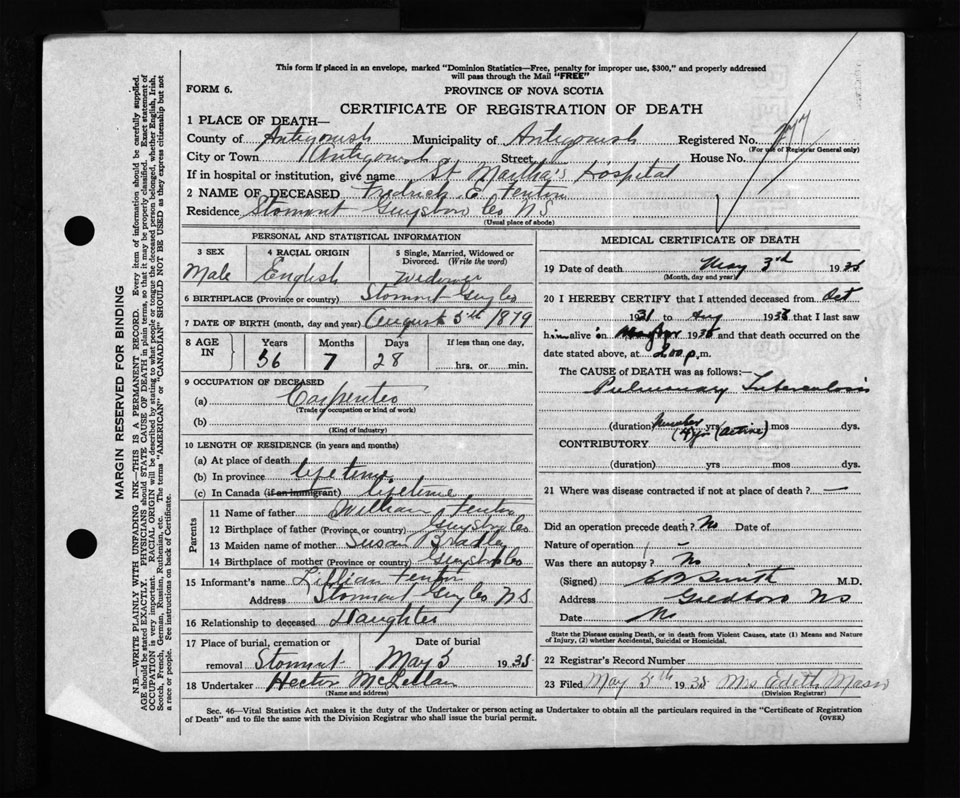 This form if placed in an envelope, marked "Dominion Statistics—Free, penalty for improper use, $300," and properly addressed
will pass through the Mail "FREE"
FORM 6.
PROVINCE OF NOVA SCOTIA
CERTIFICATE OF REGISTRATION OF DEATH
1 PLACE OF DEATH—
County of Antigonish Municipality of Antigonish Registered No.
(For use of Registrar General only)
City or Town Antigonish Street House No.
If in hospital or institution, give name St Martha's Hospital
2 NAME OF DECEASED Fredrick E. Fenton
Residence Stormont Guysboro Co N S
(Usual place of abode)
PERSONAL AND STATISTICAL INFORMATION
3 SEX 4 RACIAL ORIGIN 5 Single, Married, Widowed or Divorced. (Write the word)
Male English Widower
6 BIRTHPLACE (Province or country) Stormont Guy Co
7 DATE OF BIRTH (month, day and year) August 5th 1879
8 AGE IN Years Months Days If less than one day,
56 7 28 hrs. or min.
9 OCCUPATION OF DECEASED
(a) Carpenter
(Trade or occupation or kind of work)
(b)
(Kind of industry)
10 LENGTH OF RESIDENCE (in years and months)
(a) At place of death
(b) In province lifetime
(c) In Canada (if an immigrant) lifetime
Parents
11 Name of father William Fenton
12 Birthplace of father (Province or country) Guysboro Co
13 Maiden name of mother Susan Bradley
14 Birthplace of mother (Province or country) Guysboro Co
15 Informant's name Lillian Fenton
Address Stormont Guy Co N S
16 Relationship to deceased Daughter
17 Place of burial, cremation or removal Stormont Date of burial May 5 1935
18 Undertaker Hector McLellan
(Name and address)
MEDICAL CERTIFICATE OF DEATH
19 Date of death May 3rd 193
(Month, day and year)
20 I HEREBY CERTIFY that I attended deceased from Oct
1931 to Aug 193 that I last saw
him alive on 193 and that death occurred on the
date stated above, at 2.00 p.m.
The CAUSE OF DEATH was as follows:—
Pulmonary Tuberculosis
(duration) Number yrs mos dys.
(4 yr (active)
CONTRIBUTORY
(duration) yrs mos dys.
21 Where was disease contracted if not at place of death? —
Did an operation precede death? No Date of
Nature of operation -
Was there an autopsy? No
(Signed) C B Smith M.D.
Address Goldboro NS
Date No
State the Disease causing Death, or in death from Violent Causes, state (1) Means and Nature
of Injury, (2) whether Accidental, Suicidal or Homicidal.
22 Registrar's Record Number
23 Filed May 5th 193 Mrs Edith Mason
(Division Registrar)
Sec. 46—Vital Statistics Act makes it the duty of the Undertaker or person acting as Undertaker to obtain all the particulars required in the "Certificate of Registration
of Death" and to file the same with the Division Registrar who shall issue the burial permit.
(OVER)
MARGIN RESERVED FOR BINDING
N.B.—WRITE PLAINLY WITH UNFADING INK—THIS IS A PERMANENT RECORD. Every item of information should be carefully supplied.
AGE should be stated EXACTLY. PHYSICIANS should STATE CAUSE OF DEATH in plain terms, so that it may be properly classified. Exact statement of
OCCUPATION is very important. RACIAL ORIGIN will be described by stating to what people or tongue the deceased person belonged, whether English, Irish,
Scotch, French, German, Russian, Ruthenian, etc. The terms "AMERICAN" or "CANADIAN" SHOULD NOT BE USED as they express citizenship but not
a race or people. See instructions on back of Certificate.